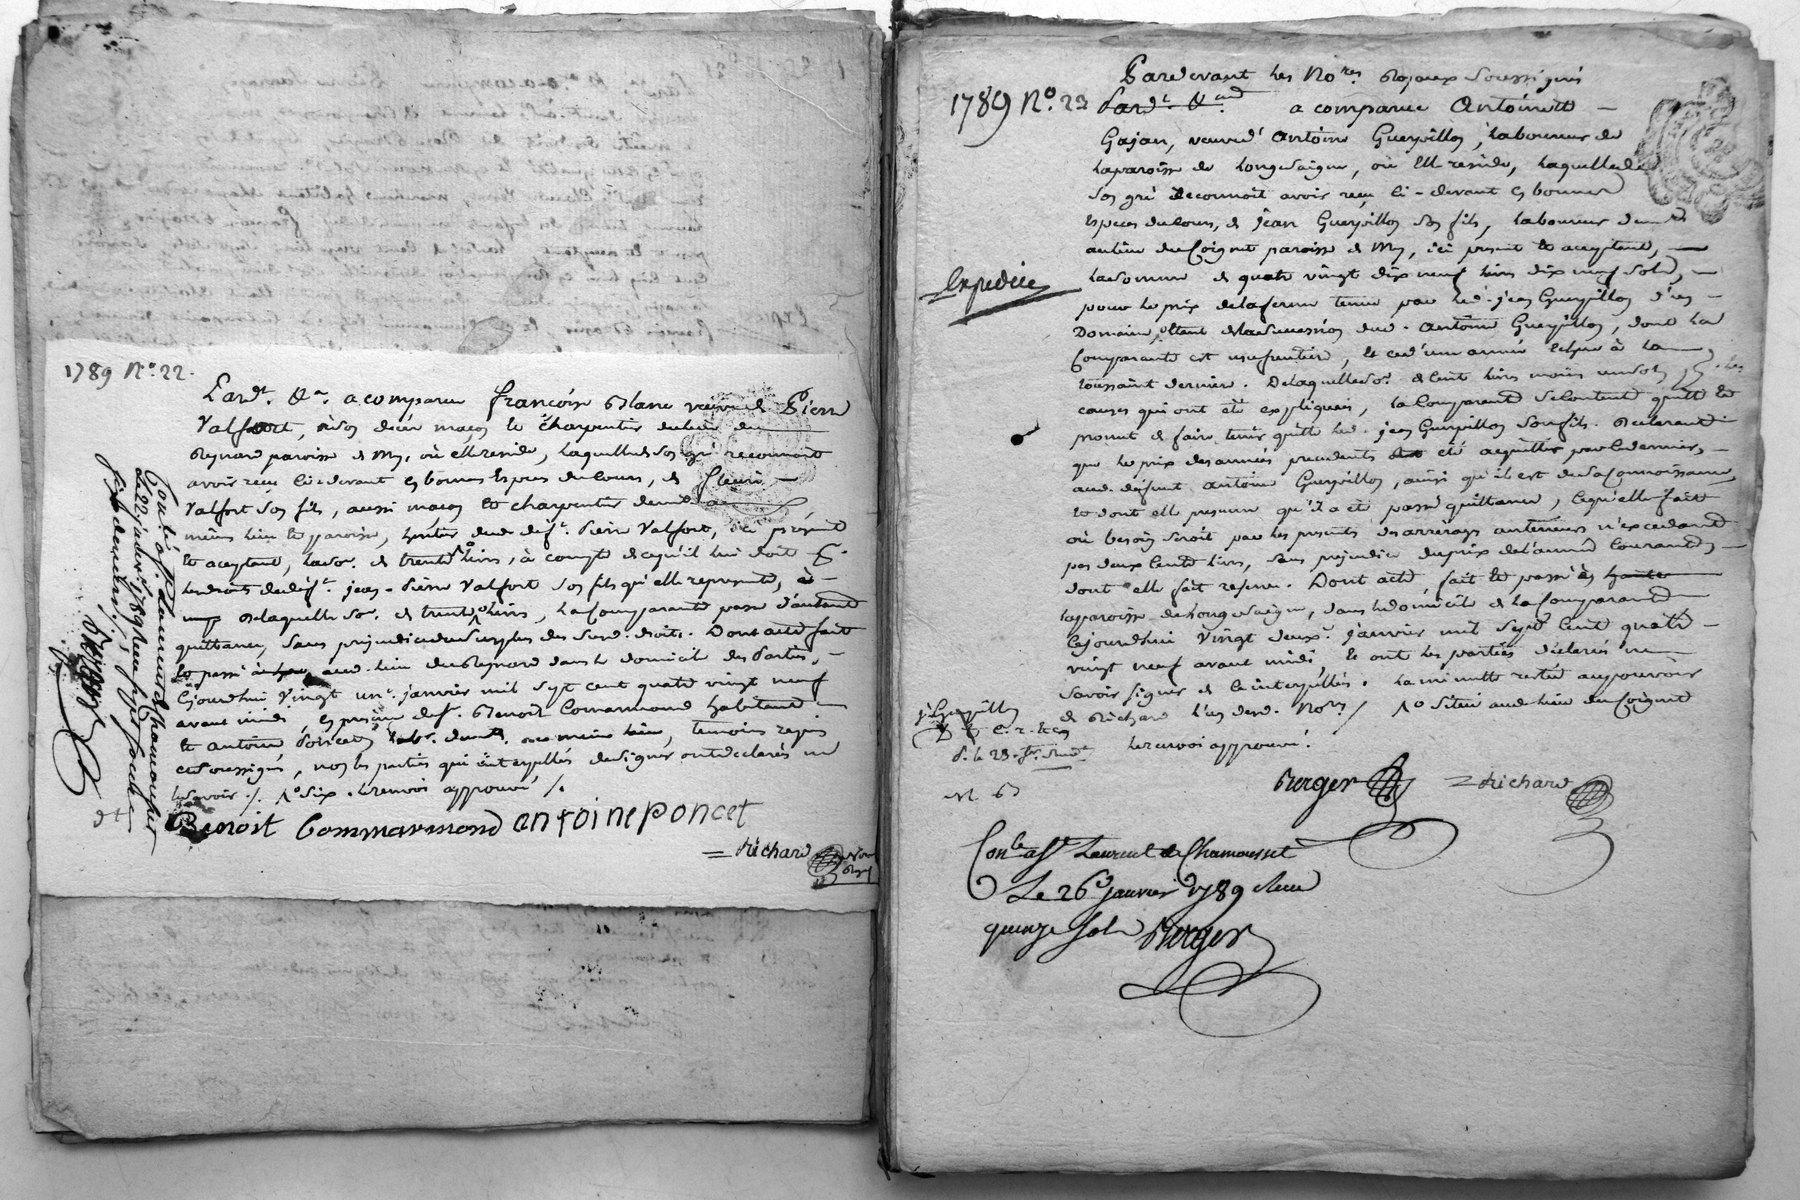 1789 N.º 22.
Pard.t &.a a comparu françoise Blanc veuve de Pierre
Valfort, vivant maçon et charpentier du lieu du
Reynard paroisse de My, où elle reside, laquelle de son gré reconnoit
avoir reçu ci-devant en bonnes especes du cours, de fleuri
Valfort son fils, aussi maçon et charpentier dem.t au
même lieu et paroisse, heritier dud. déf.t Pierre Valfort, ici présent
et aceptant, la so.e de trente livres, à compte de ce qu'il lui doit
les droits du déf.t jean-Pierre Valfort son fils qu'elle represente, de
De laquelle so.e de trente livres, la Comparante passe d'autant
quittance, sans prejudice du Surplus des Susd. droits. Dont acte fait
et passé aud. lieu du Reynard dans le domicile des Parties,
Cejourdhui Vingt un.e janvier mil sept cent quatre vingt neuf
avant midi, en présence de s.r Benoit Commarmond habitant
et antoine Poncet lab.r dem.t même lieu, temoins requis
et soussignés, non les parties qui interpellées de signer ont declaré ne
le savoir ./. 1º six . le renvoi approuvé /.
Benoit Commarmond antoine poncet
Richard
Con.lé à S.t Laurent de Chamousset
Le 22 janvier 1789 Reçu sept sols
six deniers
Berger
1789 N.º 22
Pardevant les No.res Royaux Soussignés
Pard.t &.a a comparu Antoinette
Gajan, veuve d'antoine Guerpillon, laboureur de
la paroisse de Longesaigne, où Elle reside, laquelle de
son gré Reconnoit avoir reçu ci-devant en bonnes
especes du Cours, de jean Guerpillon son fils, laboureur dem.t
au lieu du Coignet paroisse de My, ici present et aceptant,
la somme de quatre vingt dix neuf livres dix neuf sols,
pour le prix de la ferme tenue par led. jean Guerpillon d'un
Domaine, étant de la succession dud. antoine Guerpillon, dont la
Comparante est usufruitiere, et ce d'une année echue à la
toussaint derniere. De laquelle so.e de Cent livres moins un sol
causes qui ont été expliquées, la Comparante se contente quitte et
promet de faire tenir quitte led. jean Guerpillon son fils. Declarant
que le prix des années precedents été acquittés par le dernier,
aud. défunt antoine Guerpillon, ainsi qu'il est de sa Connoissance
et dont elle presume qu'il a été passé quittance, ce qu'elle fait
où besoin seroit par les presentes des arrérages antérieurs n'excedant
pas deux Cents livres, sans prejudice du prix de l'année Courante
dont elle fait reserve. Dont acte, fait et passé en
la paroisse de Longesaigne, dans le domicile de la Comparante
Cejourdhui Vingt deux.e janvier mil sept Cent quatre
vingt neuf avant midi, et ont les parties déclarés ne
savoir signer de ce interpellés. La minutte restée au pouvoir
de Richard l'un desd. No.res /. 1º située aud. lieu du Coignet
le renvoi approuvé.
Expediée
j. Guerpillon
Berger Richard
Con.lé à S.t Laurent de Chamousset
Le 26 janvier 1789 Reçu
quinze sols Berger